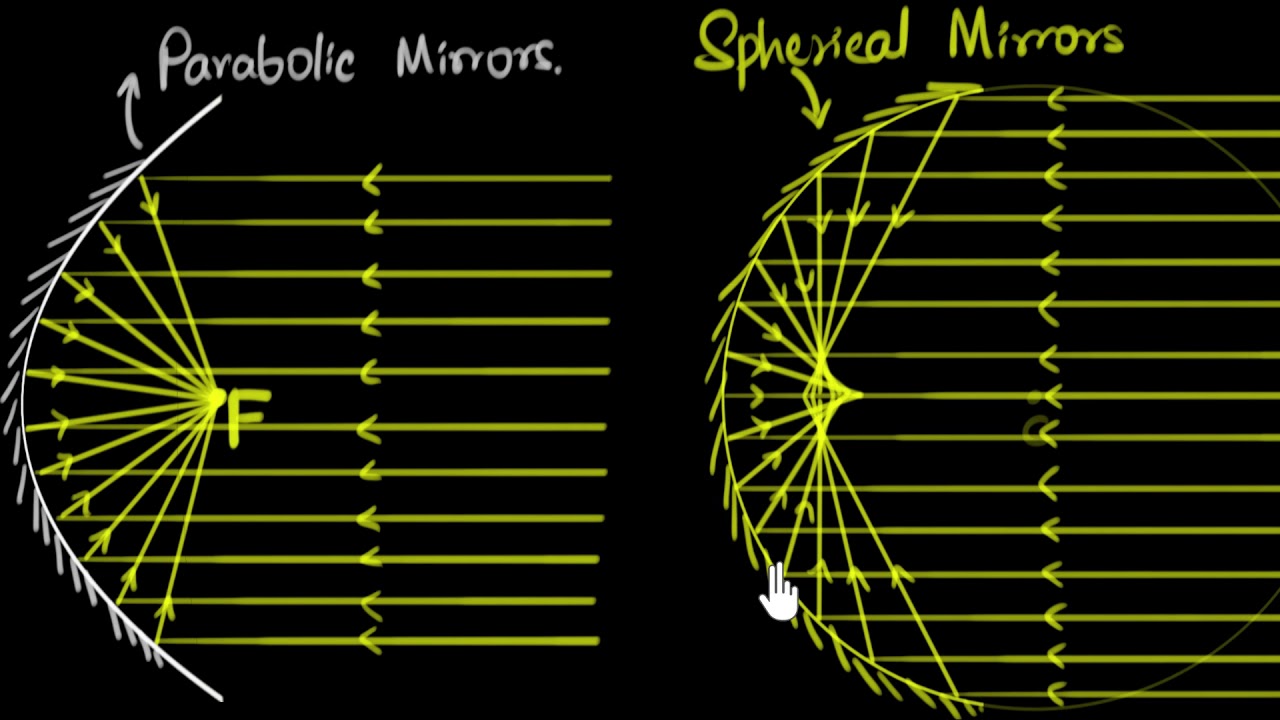 Parabolic Mirrors.
Spherical Mirrors
F
C